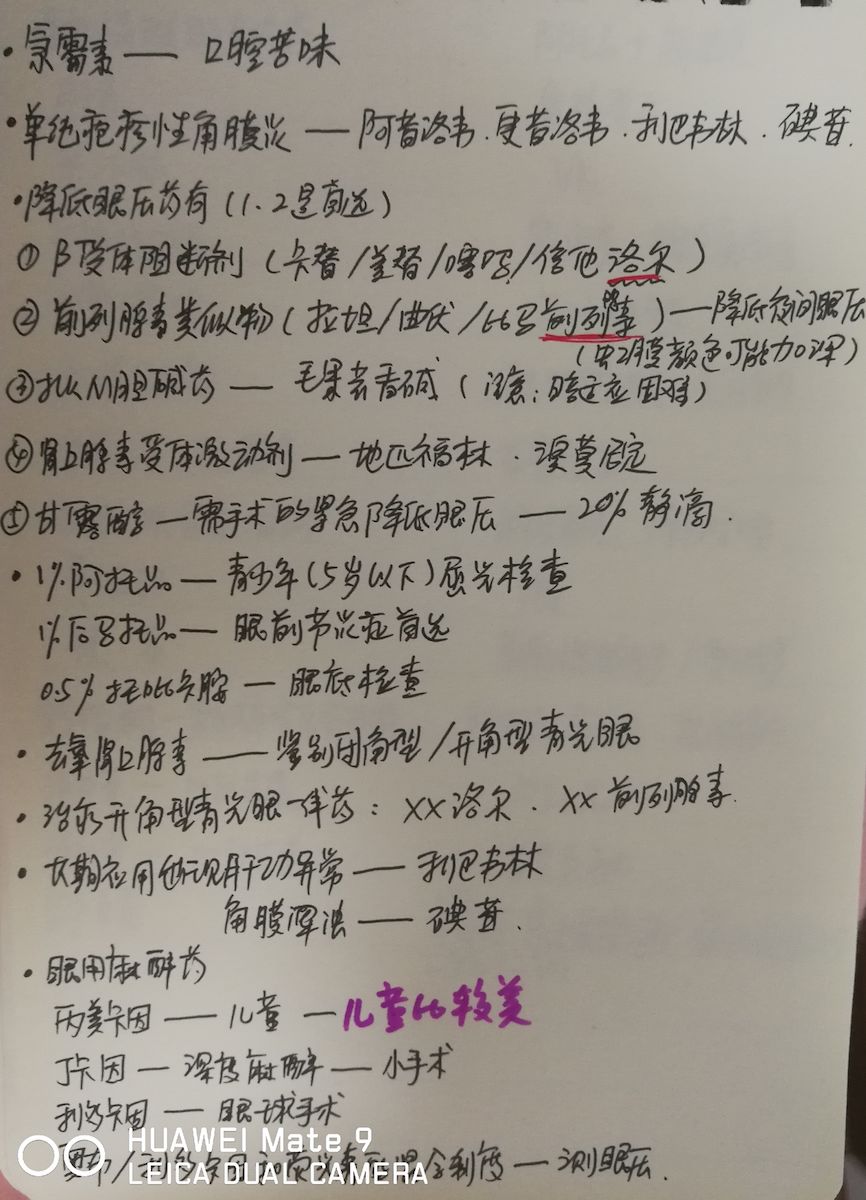 ·氯霉素 —— 口腔苦味
·单纯疱疹性角膜炎 —— 阿昔洛韦.更昔洛韦.利巴韦林.碘苷.
·降低眼压药有(1.2是首选)
① β受体阻断剂(卡替/美替/噻吗/倍他洛尔)
② 前列腺素类似物(拉坦/曲伏/比马前列素)——降低夜间眼压
(虹膜颜色可能加深)
③拟M胆碱药 —— 毛果芸香碱(注意:暗适应困难)
④肾上腺素受体激动剂 —— 地匹福林.溴莫尼定
⑤甘露醇 — 需手术的紧急降低眼压 —— 20%静滴.
·1%阿托品 — 青少年(5岁以下)屈光检查
1%后马托品 — 眼前节炎症首选
0.5%托吡卡胺 — 眼底检查
·去氧肾上腺素 —— 鉴别闭角型/开角型青光眼
·治疗开角型青光眼一线药:XX洛尔.XX前列腺素.
·长期应用出现肝功异常 —— 利巴韦林
角膜浑浊 —— 碘苷.
·眼用麻醉药
丙美卡因 —— 儿童 — 儿童比较美
丁卡因 — 深度麻醉 — 小手术
利多卡因 —— 眼球手术
奥布/利多卡因和荧光素 — 测眼压.
HUAWEI Mate 9
LEICA DUAL CAMERA